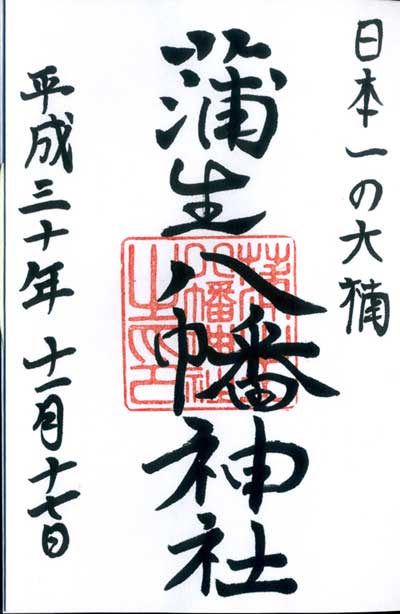 日本一の大楠
蒲生八幡神社
蒲生八幡神社之印
平成三十年十一月十七日